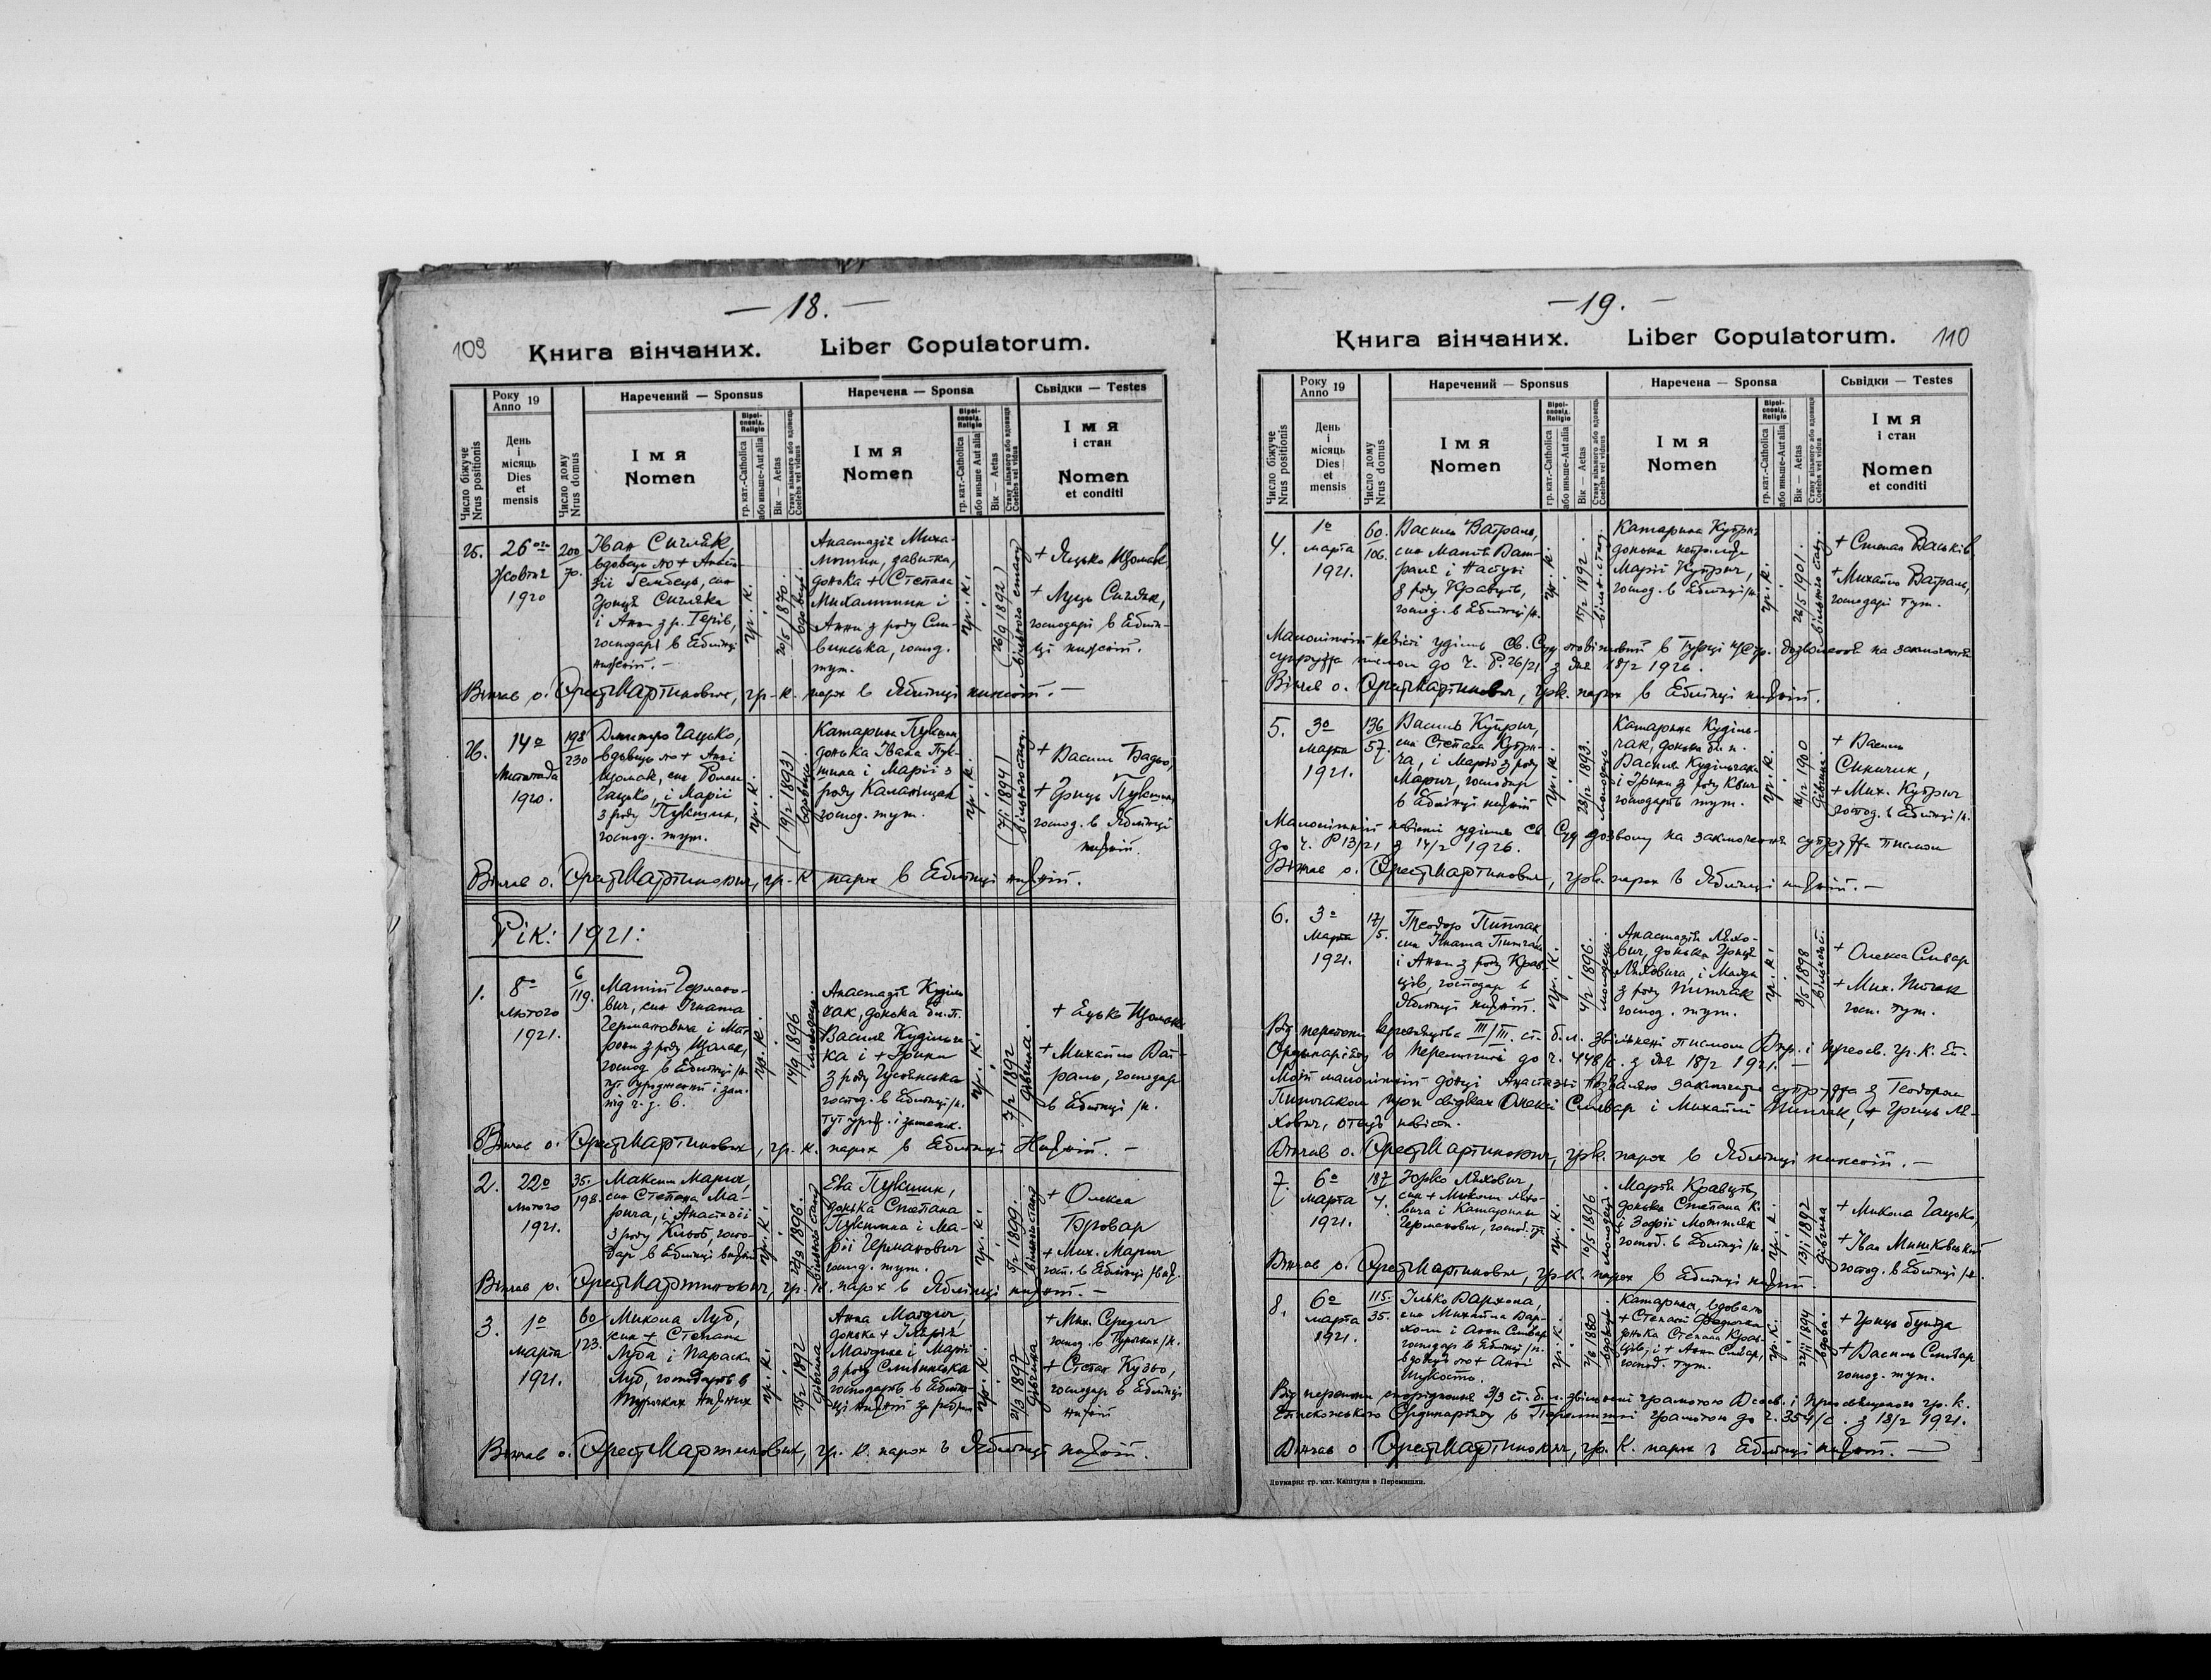 — 18. —
109
Книга вінчаних. Liber Copulatorum.
Число біжуче
Nrus positionis
Року
Anno 19
День
і
місяць
Dies
et
mensis
Число дому
Nrus domus
Наречений — Sponsus
Імя
Nomen
Віроі-
сповід.
Religio
гр. кат.-Catholica
або иньше-Aut alia
Вік — Aetas
Стану вільного або вдовець
Coelebs vel viduus
Наречена — Sponsa
Імя
Nomen
Віроі-
сповід.
Religio
гр. кат.-Catholica
або иньше Aut alia
Вік — Aetas
Стану вільного або вдовиця
Coelebs vel vidua
Сьвідки — Testes
Імя
і стан
Nomen
et conditi
25.
26ого
Жовтня
1920
200
70.
Іван Сигляк,
вдовець по + Анаста-
зії Гембець, син
Гриця Сигляка
і Анни з р. Герів,
господарі в Яблінці
нижній. —
гр. к.
20/5 1870
вдовець
Анастазія Миха-
донька + Степана
Михалишин і
Анни з роду Сли-
винська, господ.
тут.
гр. к.
(26/9 1892)
вільного стану
+ Яцько Щомак
+ Луць Сигляк,
господарі в Яблін-
ці нижній.
Вінчав о. Орест Мартинович, гр.-к. парох в Яблінці нижній. —
26.
14о
листопада
1920.
198
230
Дмитро Гацько,
вдовець по + Анні
Щомак, син Романа
Гацько, і Марії
з роду Пукшин,
господ. тут.
гр. к.
(19/2 1893)
вдовець
Катарина Пукшин
донька Івана Пук-
шина і Марії з
роду Каланіщак
господ. тут.
гр. к.
(7/1 1894)
вільного стану.
+ Василь Бадьо,
+ Гриць Пукшин
господ. в Яблінці
нижній.
Вінчав о. Орест Мартинович, гр.-к. парох в Яблінці нижній.
Рік: 1921:
1.
8о
лютого
1921.
6
119.
Матій Германо-
вич, син Игната
Германовича і Мат-
рони з роду Щомак,
господ. в Яблінці /н.
тут уроджений і зам.
під ч. д. 6.
гр. к.
14/9 1896
молодець
Анастазія Куділь-
чак, донька бл. п.
Василя Кудільча-
ка і + Ірини
з роду Гусянська
господ. в Яблінці /н.
тут урож. і замешк.
гр. к.
7/2 1892
дівчина.
+ Яцько Щомак
+ Михайло Ват-
раль, господарі
в Яблінці /н.
Вінчав о. Орест Мартинович, гр. к. парох в Яблінці Нижній. —
2.
22о
лютого
1921.
35.
198.
Максим Марич,
син Степана Ма-
рича, і Анастазії
з роду Кизьоб, госпо-
дар в Яблінці нижній
гр. к.
22/8 1896.
вільного стану
Ева Пукшин,
донька Степана
Пукшина і Ма-
рії Германович
господ. тут.
гр. к.
5/2 1899.
вільного стану
+ Олекса
Бровар
+ Мих. Марич
госп. в Яблінці /ниж.
Вінчав о. Орест Мартинович, гр. к. парох в Яблінці нижній. —
3.
1о
марта
1921.
60
123.
Микола Луб,
син + Степана
Луба і Параски
Луб, господарів в
Турочках нижних
гр. к.
15/2 1892
Анна Матдич,
донька + Іллярія
Матдича і Марії
з роду Сливинська
господарів в Яблін-
ці нижній за ребром
гр. к.
21/3 1897
дівчина
+ Мих. Середич
господ. в Турочках /н.
+ Степан Кузьо,
господар в Яблінці
нижній
Вінчав о. Орест Мартинович, гр. к. парох в Яблінці нижній.
— 19. —
110
Книга вінчаних. Liber Copulatorum.
Число біжуче
Nrus positionis
Року
Anno 19
День
і
місяць
Dies
et
mensis
Число дому
Nrus domus
Наречений — Sponsus
Імя
Nomen
Віроі-
сповід.
Religio
гр. кат.-Catholica
або иньше-Aut alia
Вік — Aetas
Стану вільного або вдовець
Coelebs vel viduus
Наречена — Sponsa
Імя
Nomen
Віроі-
сповід.
Religio
гр. кат.-Catholica
або иньше-Aut alia
Вік — Aetas
Стану вільного або вдовиця
Coelebs vel vidua
Сьвідки — Testes
Імя
і стан
Nomen
et conditi
4.
1о
марта
1921.
60.
106.
Василь Ватраль,
син Матія Ват-
раля і Настуні
з роду Кравців,
господ. в Яблінці /н.
гр. к.
15/2 1892.
вільн. стану.
Катарина Куприч
донька
Марії Куприч,
господ. в Яблінці /н.
гр. к.
26/5 1901.
вільного стану.
+ Степан Васьків
+ Михайло Ватраль,
господарі тут.
Малолітній невісті уділив Св. Суд повітовий в Турці дозволення на заключення
супружа писмом до ч. P. 26/21 з дня 18/2 1926.
Вінчав о. Орест Мартинович, гр.к. парох в Яблінці нижній.
5.
3о
марта
1921.
136
57.
Василь Куприч,
син Степана Купри-
ча, і Марії з роду
Марич, господар
в Яблінці нижній
гр. к.
23/12 1893.
молодець
Катарина Куділь-
чак, донька бл. п.
Василя Кудільчака
і Ірини з роду Квич
господарів тут.
гр. к.
16/12 190
дівчина.
+ Василь
Синичик,
+ Мих. Куприч
господ. в Яблінці /н.
Малолітній невісті уділив Св. Суд дозволу на заключення супружа писмом
до ч. P 13/21 з 14/2 1926.
Вінчав о. Орест Мартинович, гр.к. парох в Яблінці нижній. —
6.
3о
марта
1921.
17/
/5.
Теодор Пиптчак,
син Игната Пиптчака
і Анни з роду Крав-
ців, господар в
Яблінці нижній.
гр. к.
4/2 1896.
молодець.
Анастазія Ляхо-
вич, донька Гриця
Ляховича, і Магди
з роду Пиптчак
господ. тут.
гр. к.
8/5 1898
+ Олекса Сливар
+ Мих. Пиптчак
госп. тут.
Від перепони кревенцтва III/III. ст. б. л. звільнені писмом Впр. і преосв. гр. к. Еп.
Ординаріяту в Перемишлі до ч. 448/к. з дня 18/2 1921. —
Моїй малолітній донці Анастазії позваляю заключити супружа з Теодором
Пиптчаком при свідках Олексі Сливар і Михайлі Пиптчак, + Гриць Ля-
хович, отець невісти.
Вінчав о. Орест Мартинович, гр.к. парох в Яблінці нижній. —
7.
6о
марта
1921.
187
4.
Юрко Ляхович,
син + Миколи Ляхо-
вича і Катарини
Германович, господ. тут.
гр. к.
16/5 1896
молодець.
Марія Кравців,
донька Степана К.
і Зофії Мотиляк
господ. в Яблінці /н.
гр. к.
13/1 1892
дівчина
+ Микола Гацько,
+ Іван Мишковський
господ. в Яблінці /н.
Вінчав о. Орест Мартинович, гр.-к. парох в Яблінці нижній.
8.
6о
марта
1921.
115.
35.
Ілько Вархола,
син Михайла Вар-
холи і Анни Сливар
господарів в Яблінці /н.
вдовець по + Анні
гр. к.
2/8 1880
вдовець.
Катарина, вдова по
+ Степані Федична
донька Степана Крав-
ців, і + Анни Сливар,
господ. тут.
гр. к.
22/11 1894
вдова.
+ Гриць Бундза
+ Василь Сливар
господ. тут.
Від перепони споріднення 3/3 ст. б. л. звільнені грамотою Всесв. і Преосвященого гр. к.
Епископського Ординаріяту в Перемишлі грамотою до ч. 354/с. з 18/2 1921.
Вінчав о. Орест Мартинович, гр. к. парох в Яблінці нижній. —
Друкарня гр. кат. Капітули в Перемишли.